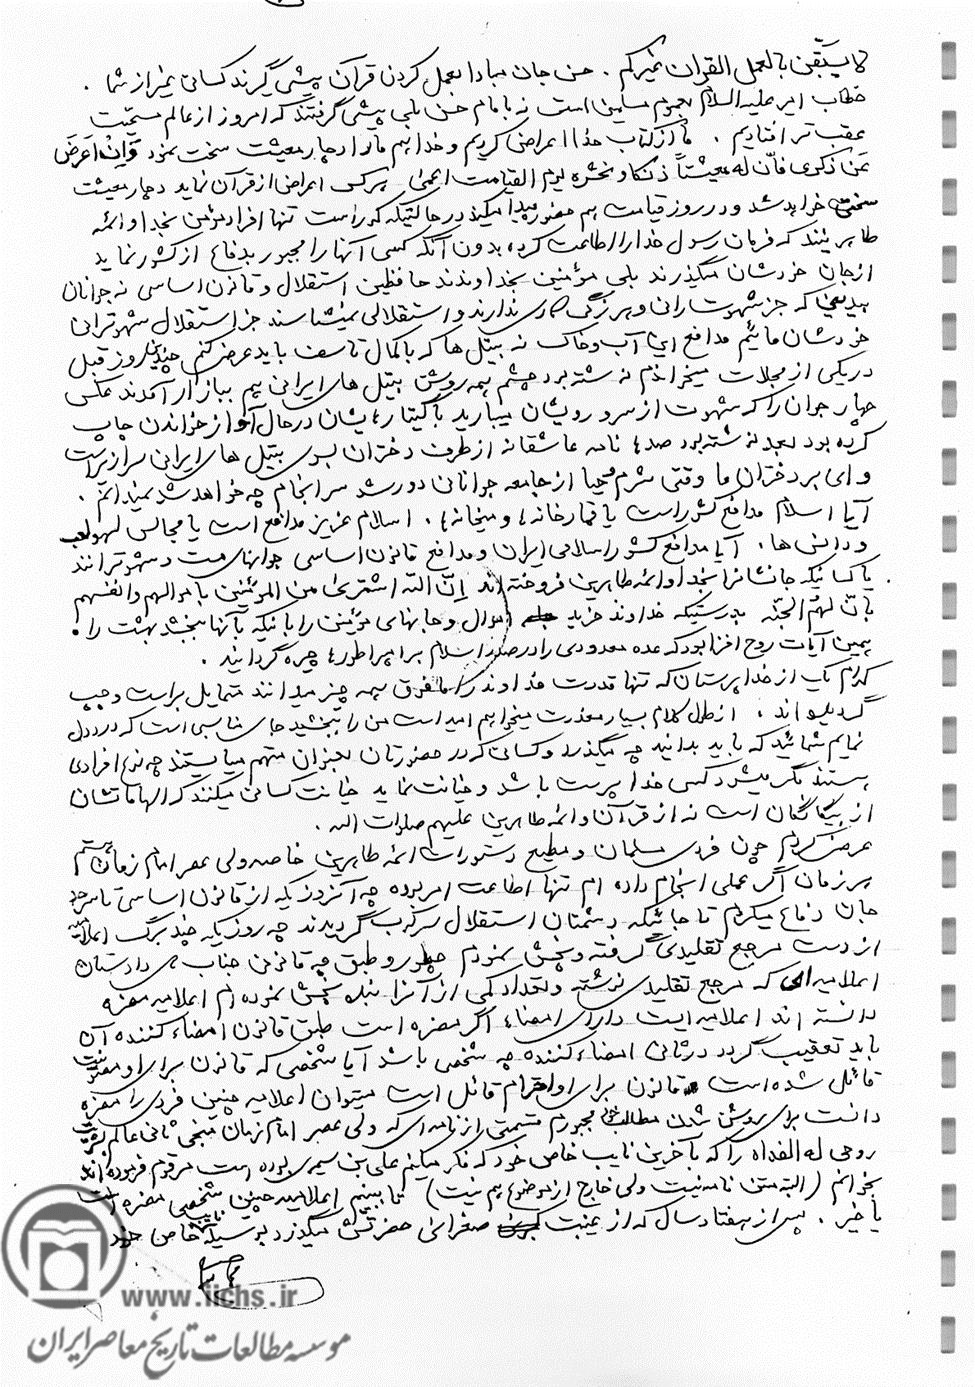 لا یسبقن بالعمل القران غیرکم . حسن جان مبادا بعمل کردن قرآن پیشی گیرند کسانی غیر از شما .
خطاب امیر علیه السلام بعموم مسلمین است نه بامام حسن بلی پیشی گرفتند که امروز از عالم سمت
عقب تر افتادیم . ما از کتاب خدا اعراض کردیم و خدا هم ما را دچار معیشت سخت نمود وَاِنْ اَعرَضَ
عَن ذکری فانّ له معیشتاً ذنکا و نحشره یوم القیامت اعمی هرکس اعراض از قرآن نماید دچار معیشت
سختی خواهد شد و در روز قیامت هم حضور پیدا میکند در حالتیکه کور است تنها افراد مؤمن بخدا و ائمه
طاهرینند که فرمان رسول خدا را اطاعت کرده بدون آنکه کسی آنها را مجبور بدفاع از کشور نماید
از جان خودشان میگذرند بلی مؤمنین بخداوندند حافظین استقلال و قانون اساسی نه جوانان
بیدینی که جز شهوت رانی و هرزگی کاری ندارند و استقلالی نمیشناسند جز استقلال شهوترانی
خودشان مائیم مدافع این آب و خاک نه بیتل ها که با کمال تاسف باید عرض کنم چند روز قبل
در یکی از مجلات میخواندم نوشته بود چشم همه روشن بیتل های ایرانی هم ببازار آمدند عکس
چهار جوان را که شهوت از سر و رویشان میبارید با گیتارهایشان در حال آواز خواندن چاپ
کرده بود بعد نوشته بود صدها نامه عاشقانه از طرف دختران بسوی بیتل های ایرانی سرازیر است
وای بر دختران ما وقتی شرم و حیا از جامعه جوانانی دور شد سرانجام چه خواهد شد نمیدانم .
آیا اسلام مدافع کشور است یا قمارخانه ها و میخانه ها . اسلام عزیز مدافع است یا مجالس لهو و لعب
و دانس ها . آیا مدافع کشور اسلامی ایران و مدافع قانون اساسی جوانهای مست و شهوترانند
یا کسانیکه جانشانرا بخدا و ائمه طاهرین فروخته اند اِنّ الله اشتری من المؤمنین باموالهم وانفسهم
بانّ لهم الجنّه بدرستیکه خداوند خرید اموال و جانهای مؤمنین را باینکه بآنها ببخشد بهشت را .
همین آیات روح افزا بود که عده معدودی را در صدر اسلام بر امپراطورها چیره گردانید .
کدام یک از خدا پرستان که تنها قدرت خداوند را مافوق همه چیز میدانند متمایل براست و چپ
گردیده اند . از طول کلام بسیار معذرت میخواهم امید است من را ببخشید جای مناسبی است که درد دل
نمایم شمائید که باید بدانید چه میگذرد و کسانی که در حضورتان بعنوان متهم میایستند چه نوع افرادی
هستند مگر میشود کسی خدا پرست باشد و خیانت نماید خیانت کسانی میکنند که الهاماتشان
از بیگانگان است نه از قرآن و ائمه طاهرین علیهم صلوات الله .
عرض کردم چون فردی مسلمان و مطیع دستورات ائمه طاهرین خاصه ولی عصر امام زمان هستم
هر زمان اگر عملی انجام داده ام تنها اطاعت امر بوده چه آنروزیکه از قانون اساسی تا سرحد
جان دفاع میکردم تا جائیکه دشمنان استقلال سرکوب گردیدند چه روزیکه چند برگ اعلامیه
از دست مرجع تقلیدی گرفته و پخش نمودم چطور و طبق چه قانونی جناب دادستان
اعلامیه ای که مرجع تقلیدی نوشته و تعداد کمی از آنرا بنده پخش نموده ام اعلامیه مضره
دانسته اند اعلامیه ایست دارای امضاء اگر مضره است طبق قانون امضاء کننده آن
باید تعقیب گردد در ثانی امضاء کننده چه شخصی باشد آیا شخصی که قانون برای او مصونیت
قائل شده است قانون برای او احترام قائل است میتوان اعلامیه چنین فردی را مضره
دانست برای روشن شدن مطالب مجبورم قسمتی از نامه ای که ولی عصر امام زمان منجی ثانی عالم بشریت
روحی له الفداه را که بآخرین نایب خاص خود که فکر میکنم علی بن سیمری بوده است مرقوم فرموده اند
بخوانم (البته متن نامه نیست ولی خارج از موضوع هم نیست) تا ببینیم اعلامیه چنین شخصی مضره است
یا خیر . پس از هفتاد سال که از غیبت صغرای حضرتش میگذرد بوسیله نایب خاص خود
www.iichs.ir
موسسه مطالعات تاریخ معاصر ایران